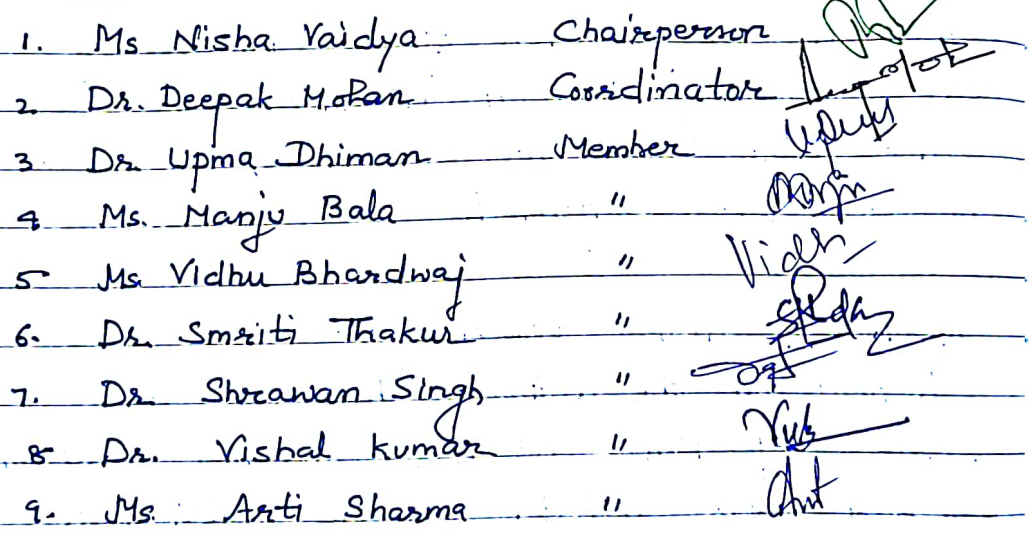 1. Ms Nisha Vaidya Chairperson
2 Dr. Deepak Mohan Coordinator
3 Dr Upma Dhiman Member
4 Ms. Manju Bala "
5 Ms. Vidhu Bhardwaj " Vidh
6. Dr. Smriti Thakur "
7. Dr Shrawan Singh "
8 Dr. Vishal Kumar "
9. Ms. Arti Sharma "